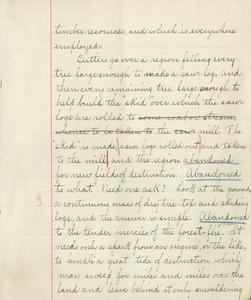 timber resources, and which is everywhere
employed:
Cutters go over a region felling every
tree large enough to make a saw log, and
then every remaining tree large enough to
help build the "skid" over which the saw-
logs are rolled to some road or stream,
whence to be taken to the saw mill. The
"skid" is made, saw logs rolled out, and taken
to the mill, and the region abandoned
for new fields of destruction. Abandoned
to what? Need one ask? Look at the
a continuous mass of dry tree-top and skidding
logs, and the answer is simple. Abandoned
to the tender mercies of the forest-fire. It
needs only a spark from an engine, or the like,
to kindle a great tide of destruction which
may sweep for miles and miles over the
land and leave behind it only smouldering